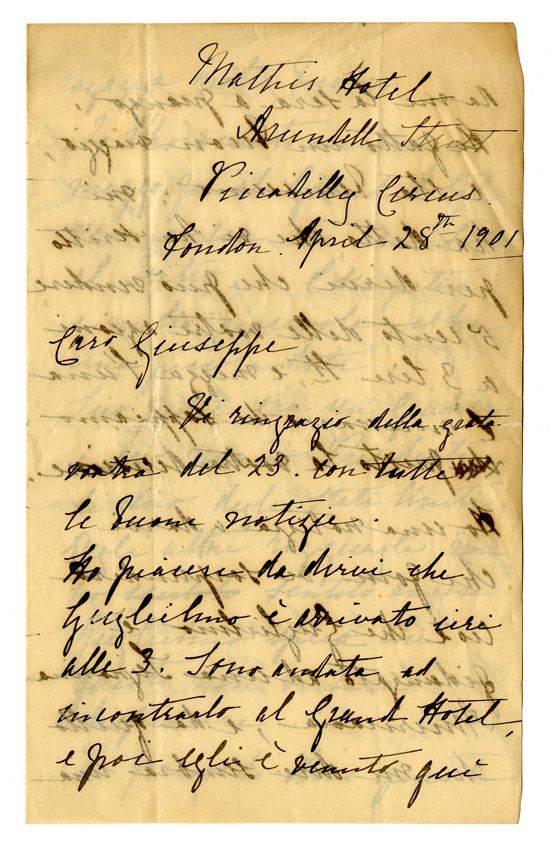 Mathis Hotel
Arundell Street
Piccadilly Circus.
London. April 28th 1901
Caro Giuseppe
Vi ringrazio della grata
vostra del 23. con tutte
le buone notizie.
Ho piacere da dirvi che
Guglielmo è arrivato ieri
alle 3. Sono andata ad
incontrarlo al Grand Hotel,
e poi egli è venuto qui